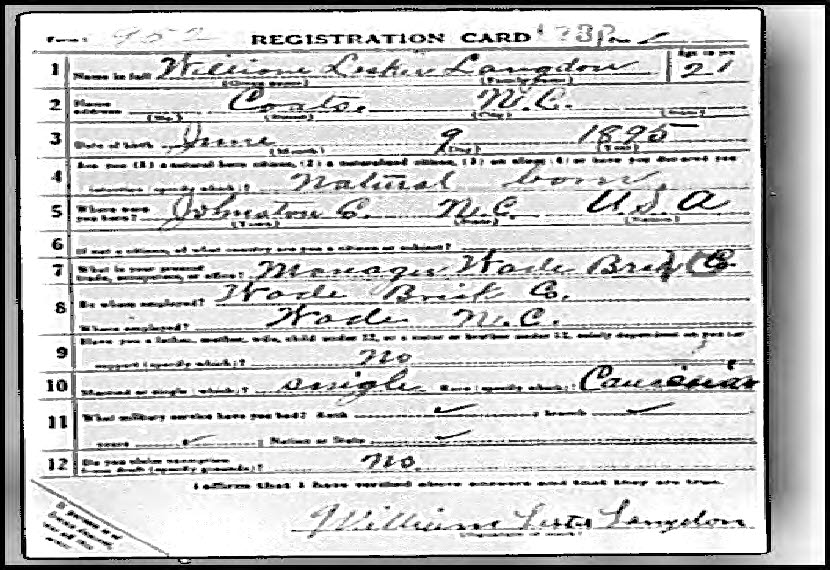 Form 1 952 REGISTRATION CARD No.
1 Name in full William Lester Langdon Age in yrs 21
(Given name) (Family name)
2 Home address Coats, N.C.
(No.) (Street) (City) (State)
3 Date of birth June 9 1895
(Month) (Day) (Year)
Are you (1) a natural born citizen, (2) a naturalized citizen, (3) an alien (4) or have you declared your
4 intention (specify which)? Natural born
5 Where were you born? Johnston C. N.C. U.S.A
(Town) (State) (Nation)
6 If not a citizen, of what country are you a citizen or subject?
7 What is your present trade, occupation, or office? Manager Wade Brick Co
8 By whom employed? Wade Brick Co.
Where employed? Wade N.C.
Have you a father, mother, wife, child under 12, or a sister or brother under 12, solely dependent on you for
9 support (specify which)? No
10 Married or single (which)? single Race (specify which)? Caucasian
11 What military service have you had? Rank ✓ ; branch ✓
years ✓ ; Nation or State ✓
12 Do you claim exemption from draft (specify grounds)? No
I affirm that I have verified above answers and that they are true.
William Lester Langdon